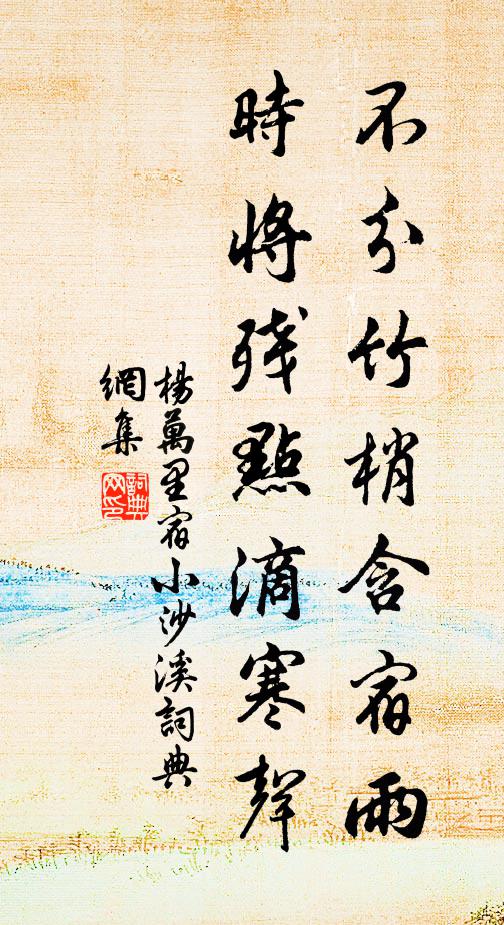 不分竹梢含宿雨
時將残點滴寒聲
楊萬里宿小沙溪詞典
網集
詞典
网印